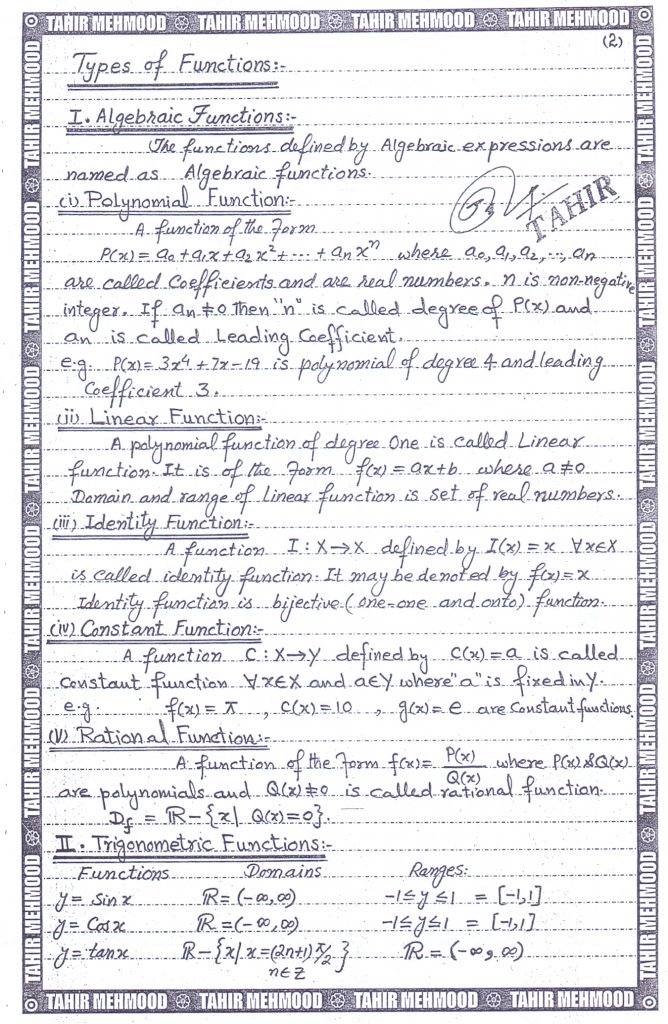 TAHIR MEHMOOD TAHIR MEHMOOD TAHIR MEHMOOD TAHIR MEHMOOD
(2)
Types of Functions:-
I. Algebraic Functions:-
The functions defined by Algebraic expressions are
named as Algebraic functions.
(i) Polynomial Function:-
TAHIR
A function of the Form
P(x) = a₀ + a₁x + a₂x² + ... + aₙxⁿ where a₀, a₁, a₂, ..., aₙ
are called Coefficients and are real numbers. n is non-negative
integer. If aₙ ≠ 0 Then "n" is called degree of P(x) and
aₙ is called Leading Coefficient.
e.g. P(x) = 3x⁴ + 7x - 19 is polynomial of degree 4 and leading
Coefficient 3.
(ii) Linear Function:-
A polynomial function of degree One is called Linear
function. It is of the Form f(x) = ax+b where a ≠ 0
Domain and range of Linear function is set of real numbers.
(iii) Identity Function:-
A function I : X→X defined by I(x) = x ∀ x∈X
is called identity function. It may be denoted by f(x) = x
Identity function is bijective (one-one and onto) function.
(iv) Constant Function:-
A function C : X→Y defined by C(x) = a is called
Constant function ∀ x∈X and a∈Y where "a" is fixed in Y.
e.g. f(x) = π , C(x) = 10 , g(x) = e are Constant functions.
(v) Rational Function:-
A function of the Form f(x) = P(x)/Q(x) where P(x) & Q(x)
are polynomials and Q(x) ≠ 0 is called rational function.
D_f = ℝ - {x| Q(x) = 0}.
II. Trigonometric Functions:-
Functions Domains Ranges:
y = sin x ℝ = (-∞, ∞) -1 ≤ y ≤ 1 = [-1, 1]
y = Cos x ℝ = (-∞, ∞) -1 ≤ y ≤ 1 = [-1, 1]
y = tan x ℝ - {x| x = (2n+1) π/2 } ℝ = (-∞, ∞)
n∈Z
TAHIR MEHMOOD TAHIR MEHMOOD TAHIR MEHMOOD TAHIR MEHMOOD
TAHIR MEHMOOD TAHIR MEHMOOD TAHIR MEHMOOD TAHIR MEHMOOD TAHIR MEHMOOD TAHIR MEHMOOD
TAHIR MEHMOOD TAHIR MEHMOOD TAHIR MEHMOOD TAHIR MEHMOOD TAHIR MEHMOOD TAHIR MEHMOOD